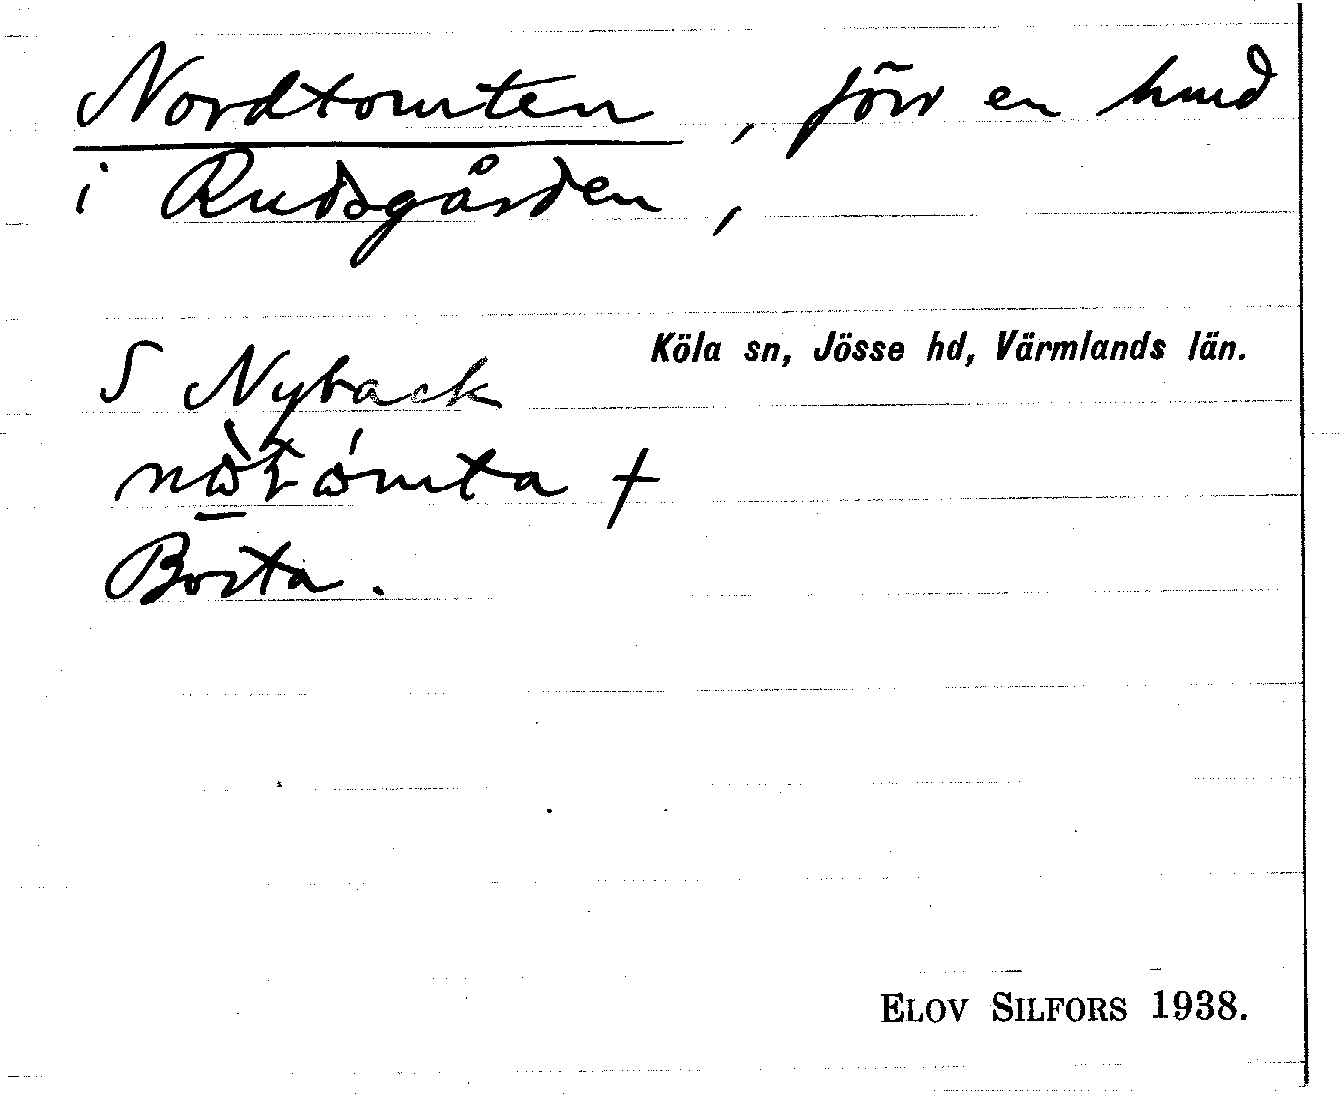 Nordtomten, förr en hmd
i Rudsgården,
Köla sn, Jösse hd, Värmlands län.
S Nyback
Borta.
ELOV SILFORS 1938.